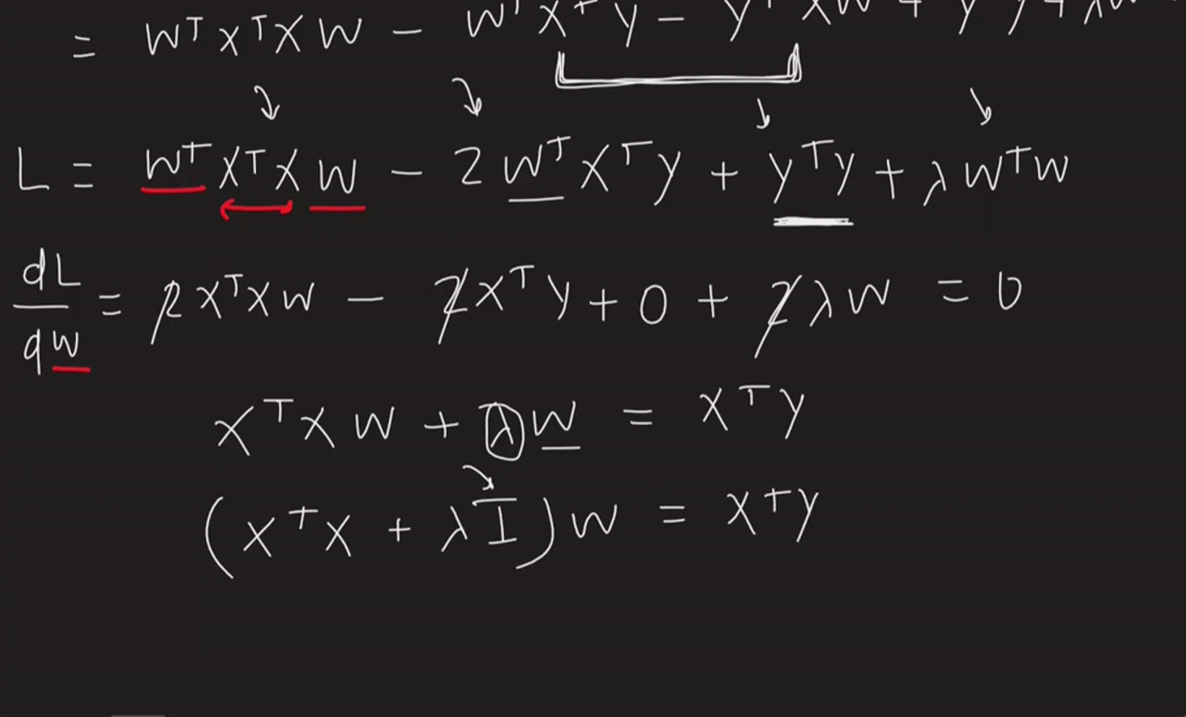 = Wᵀ Xᵀ X W − Wᵀ Xᵀ y − yᵀ X W + yᵀ y + λ W
L = Wᵀ Xᵀ X W − 2 Wᵀ Xᵀ y + yᵀ y + λ Wᵀ W
dL/dW = 2 Xᵀ X W − 2 Xᵀ y + 0 + 2 λ W = 0
Xᵀ X W + λ W = Xᵀ y
(Xᵀ X + λ I) W = Xᵀ y